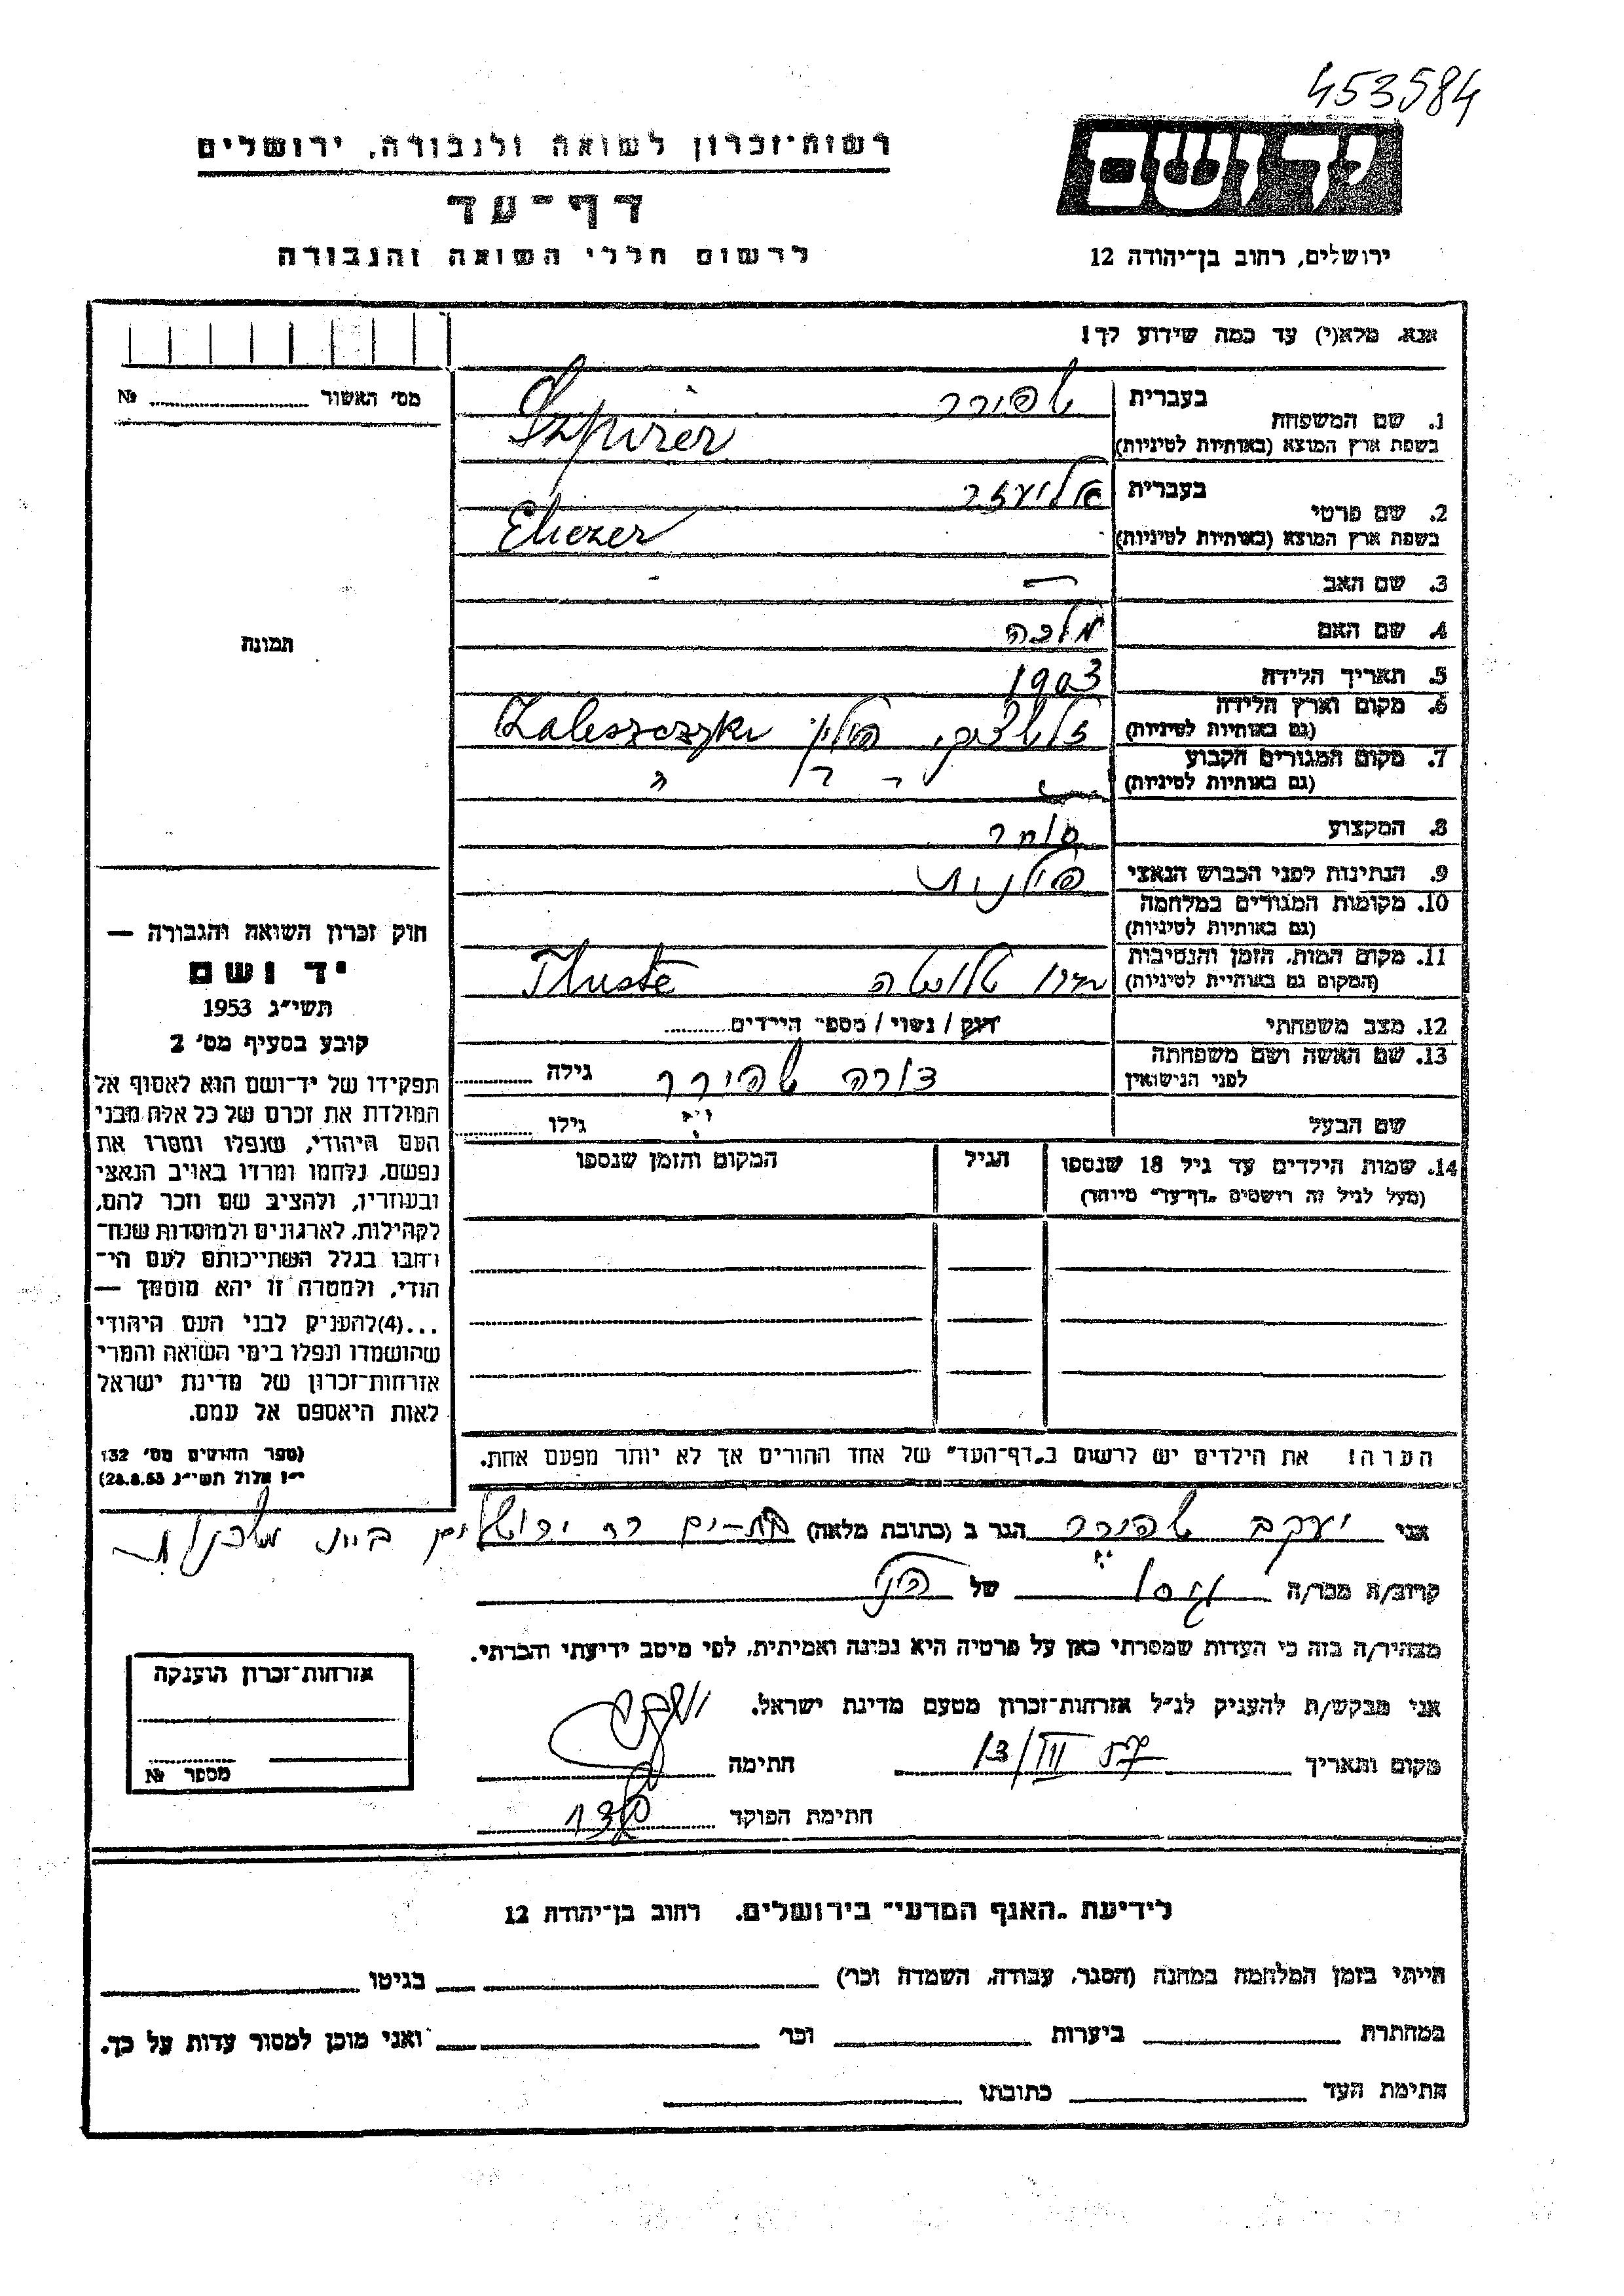 453584
יד ושם
רשות־זכרון לשואה ולגבורה, ירושלים
דף־עד
לרשום חללי השואה והגבורה
ירושלים, רחוב בן־יהודה 12
אנא, מלא(י) עד כמה שידוע לך!
מס׳ האשור № 
1. שם המשפחה
בעברית שפירר
בשפת ארץ המוצא (באותיות לטיניות) Szpirer
2. שם פרטי
בעברית אליעזר
בשפת ארץ המוצא (באותיות לטיניות) Eliezer
3. שם האב —
4. שם האם מלכה
5. תאריך הלידה 1903
6. מקום וארץ הלידה
(גם באותיות לטיניות) זלשצ׳יקי, פולין Zaleszczyki
7. מקום המגורים הקבוע
(גם באותיות לטיניות) " " "
8. המקצוע סוחר
9. הנתינות לפני הכבוש הנאצי פולנית
10. מקומות המגורים במלחמה
(גם באותיות לטיניות)
11. מקום המות, הזמן והנסיבות
(המקום גם באותיות לטיניות) טלוסטה Tluste
12. מצב משפחתי רווק / נשוי / מספר הילדים
13. שם האשה ושם משפחתה
לפני הנישואין שפירר גילה
שם הבעל גילו
14. שמות הילדים עד גיל 18 שנספו
(מעל לגיל זה רושמים „דף־עד״ מיוחד)
הגיל
המקום והזמן שנספו
הערה: את הילדים יש לרשום ב„דף־העד״ של אחד ההורים אך לא יותר מפעם אחת.
תמונה
חוק זכרון השואה והגבורה —
יד ושם
תשי״ג 1953
קובע בסעיף מס׳ 2
תפקידו של יד־ושם הוא לאסוף אל
המולדת את זכרם של כל אלה מבני
העם היהודי, שנפלו ומסרו את
נפשם, נלחמו ומרדו באויב הנאצי
ובעוזריו, ולהציב שם וזכר להם,
לקהילות, לארגונים ולמוסדות שנח־
רבו בגלל השתייכותם לעם הי־
הודי, ולמטרה זו יהא מוסמך —
...(4)להעניק לבני העם היהודי
שהושמדו ונפלו בימי השואה והמרי
אזרחות־זכרון של מדינת ישראל
לאות היאספם אל עמם.
(ספר החוקים מס׳ 132
י״ז אלול תשי״ג 28.8.53)
אני יעקב שפירר הגר ב (כתובת מלאה) בת־ים
קרוב/ה מכר/ה גיסו של
מצהיר/ה בזה כי העדות שמסרתי כאן על פרטיה היא נכונה ואמיתית, לפי מיטב ידיעתי והכרתי.
אני מבקש/ת להעניק לנ״ל אזרחות־זכרון מטעם מדינת ישראל.
מקום ותאריך 13/III חתימה
חתימת הפוקד
אזרחות־זכרון הוענקה
מספר №
לידיעת „האגף המדעי״ בירושלים. רחוב בן־יהודה 12
הייתי בזמן המלחמה במחנה (הסגר, עבודה, השמדה וכר׳) בגיטו
במחתרת ביערות וכר׳ ואני מוכן למסור עדות על כך.
חתימת העד כתובתו